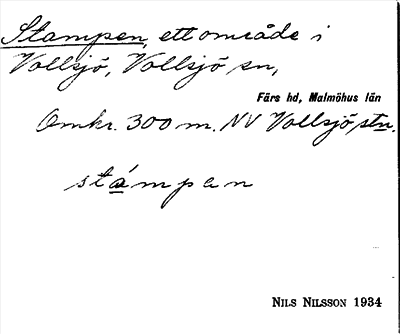 Stampen, ett område i
Vollsjö, Vollsjö sn,
Färs hd, Malmöhus län
Omkr. 300 m. NV Vollsjö stn.
stámpan
NILS NILSSON 1934